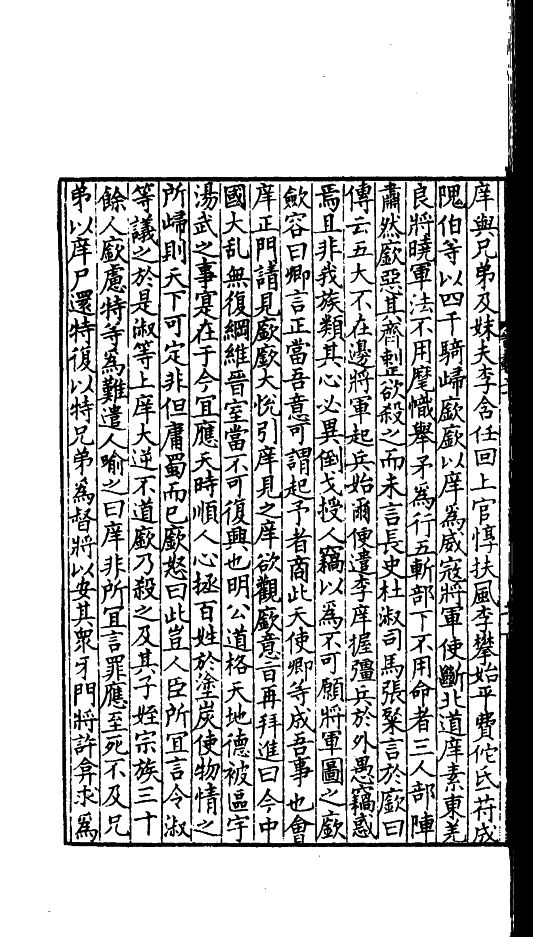 庠與兄弟及妹夫李含任回上官惇扶風李攀始平費佗氐苻成
隗伯等以四千騎歸廞廞以庠為威寇將軍使斷北道庠素東羌
良將曉軍法不用麾幟舉矛為行五斬部下不用命者三人部陣
肅然廞惡其齊𠡠欲殺之而未言長史杜淑司馬張粲言於廞曰
傳云五大不在邊將軍起兵始爾便遣李庠握彊兵於外愚竊惑
焉且非我族類其心必異倒戈授人竊以為不可願將軍圖之廞
歛容曰卿言正當吾意可謂起予者商此天使卿等成吾事也會
庠正門請見廞廞大悅引庠見之庠欲觀廞意㫖再拜進曰今中
國大乱無復綱維晉室當不可復興也明公道格天地德被區宇
湯武之事寔在于今宜應天時順人心拯百姓於塗炭使物情之
所歸則天下可定非但庸蜀而已廞怒曰此豈人臣所宜言令淑
等議之於是淑等上庠大逆不道廞乃殺之及其子姪宗族三十
餘人廞慮特等為難遣人喻之曰庠非所宜言罪應至死不及兄
弟以庠尸還特復以特兄弟為督將以安其衆牙門將許弇求為